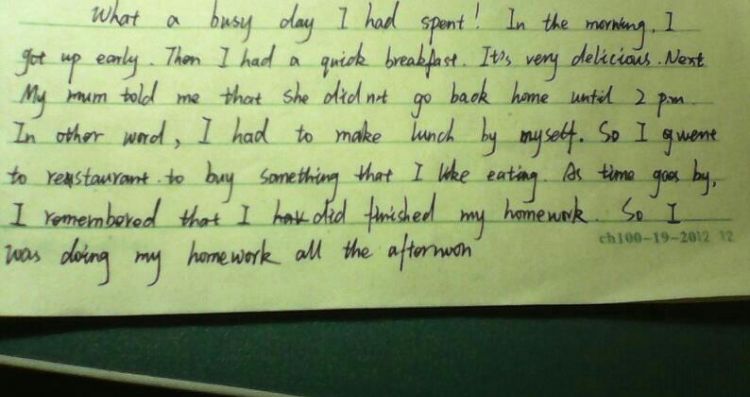 What a busy day I had spent! In the morning, I
got up early. Then I had a quick breakfast. It's very delicious. Next
My mum told me that she did not go back home until 2 p.m.
In other word, I had to make lunch by myself. So I went
to restaurant to buy something that I like eating. As time goes by,
I remembered that I did finished my homework. So I
was doing my homework all the afternoon
ch100-19-2012 12